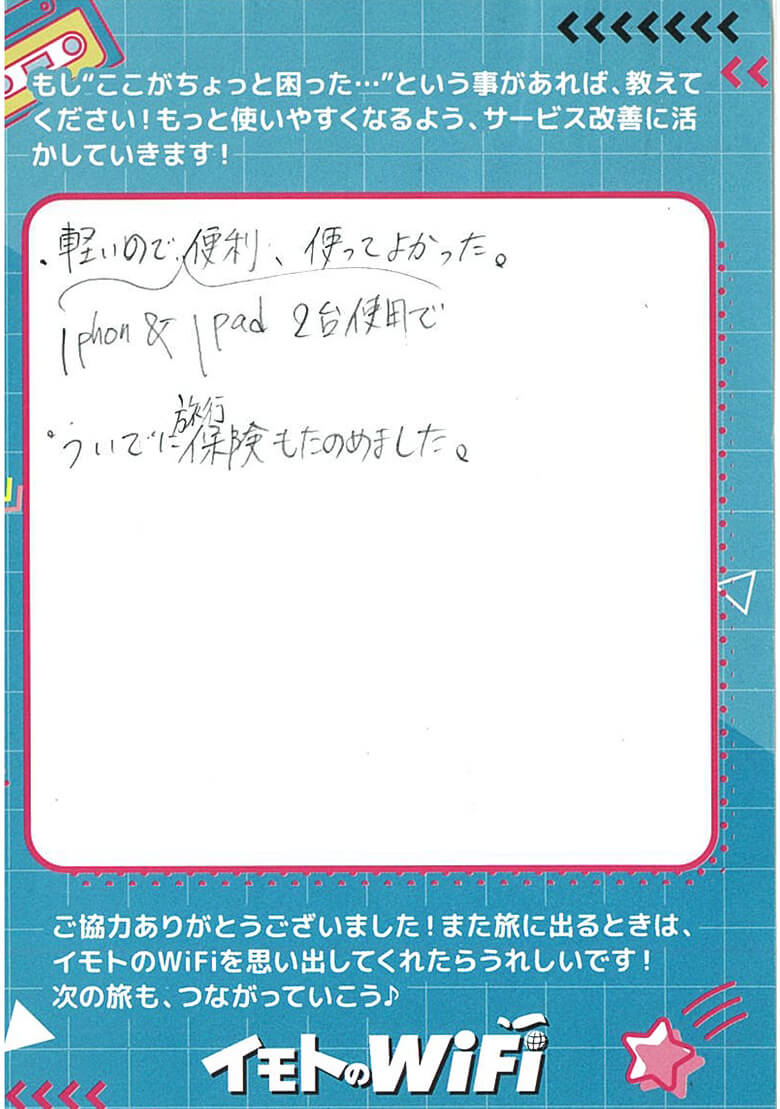 もし“ここがちょっと困った…”という事があれば、教えて
ください！もっと使いやすくなるよう、サービス改善に活
かしていきます！
・軽いので便利、使ってよかった。
Iphon & Ipad 2台使用で
旅行
・ついでに保険もたのめました。
ご協力ありがとうございました！また旅に出るときは、
イモトのWiFiを思い出してくれたらうれしいです！
次の旅も、つながっていこう♪
イモトのWiFi